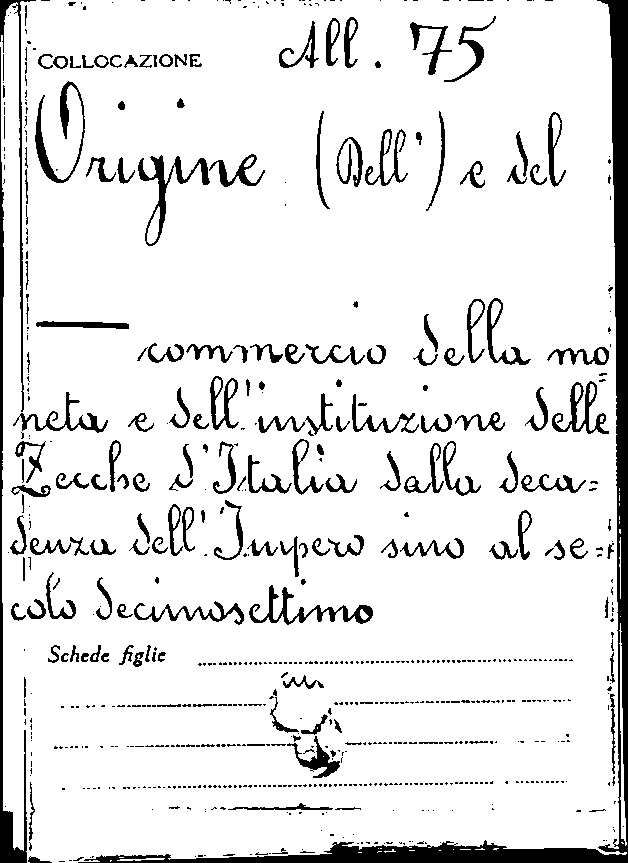 COLLOCAZIONE All. 75
Origine (Dell') e del
— commercio della mo=
neta e dell'instituzione delle
Zecche d'Italia dalla deca=
denza dell'Impero sino al se=
colo decimosettimo
Schede figlie